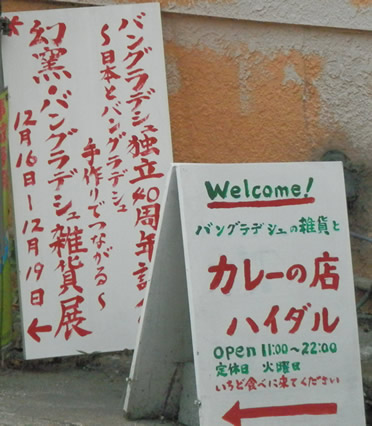 バングラデシュ独立40周年記
〜日本とバングラデシュ
手作りでつながる〜
幻窯・バングラデシュ雑貨展
12月16日ー12月19日
←
Welcome!
バングラデシュの雑貨と
カレーの店
ハイダル
open 11:00〜22:00
定休日 火曜日
いちど食べに来てください
←